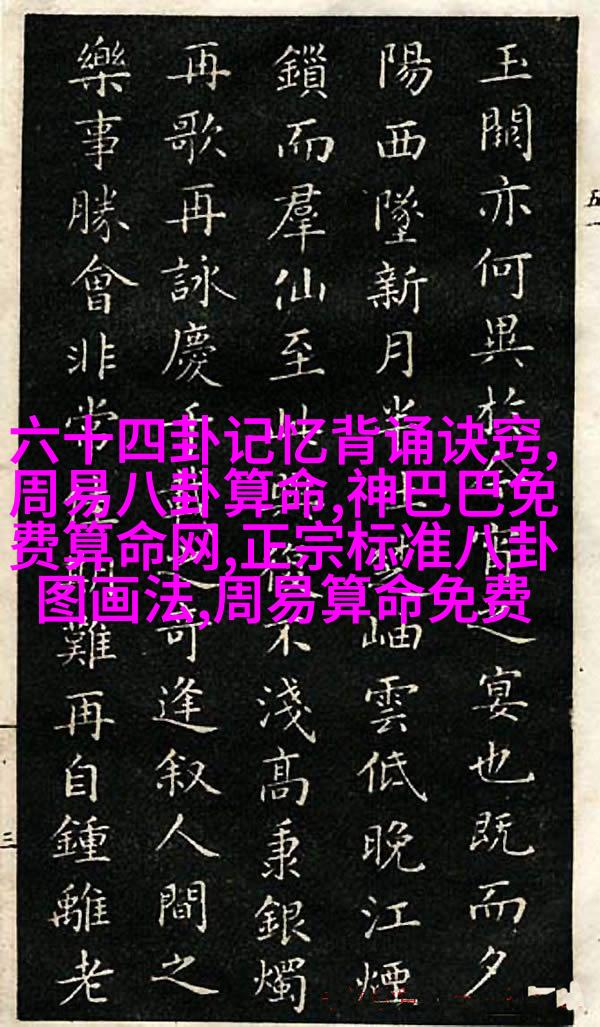 玉闕亦何異於今宵之宴也既而夕
陽西墜新月半上楚岫雲低晚江煙
鎖而羣仙至此興復不淺高秉銀燭
再歌再詠慶千載之奇逢叙人間之
樂事勝會非常難再自鍾離老
六十四卦记忆背诵诀窍,
周易八卦算命,神巴巴免
费算命网,正宗标准八卦
图画法,周易算命免费